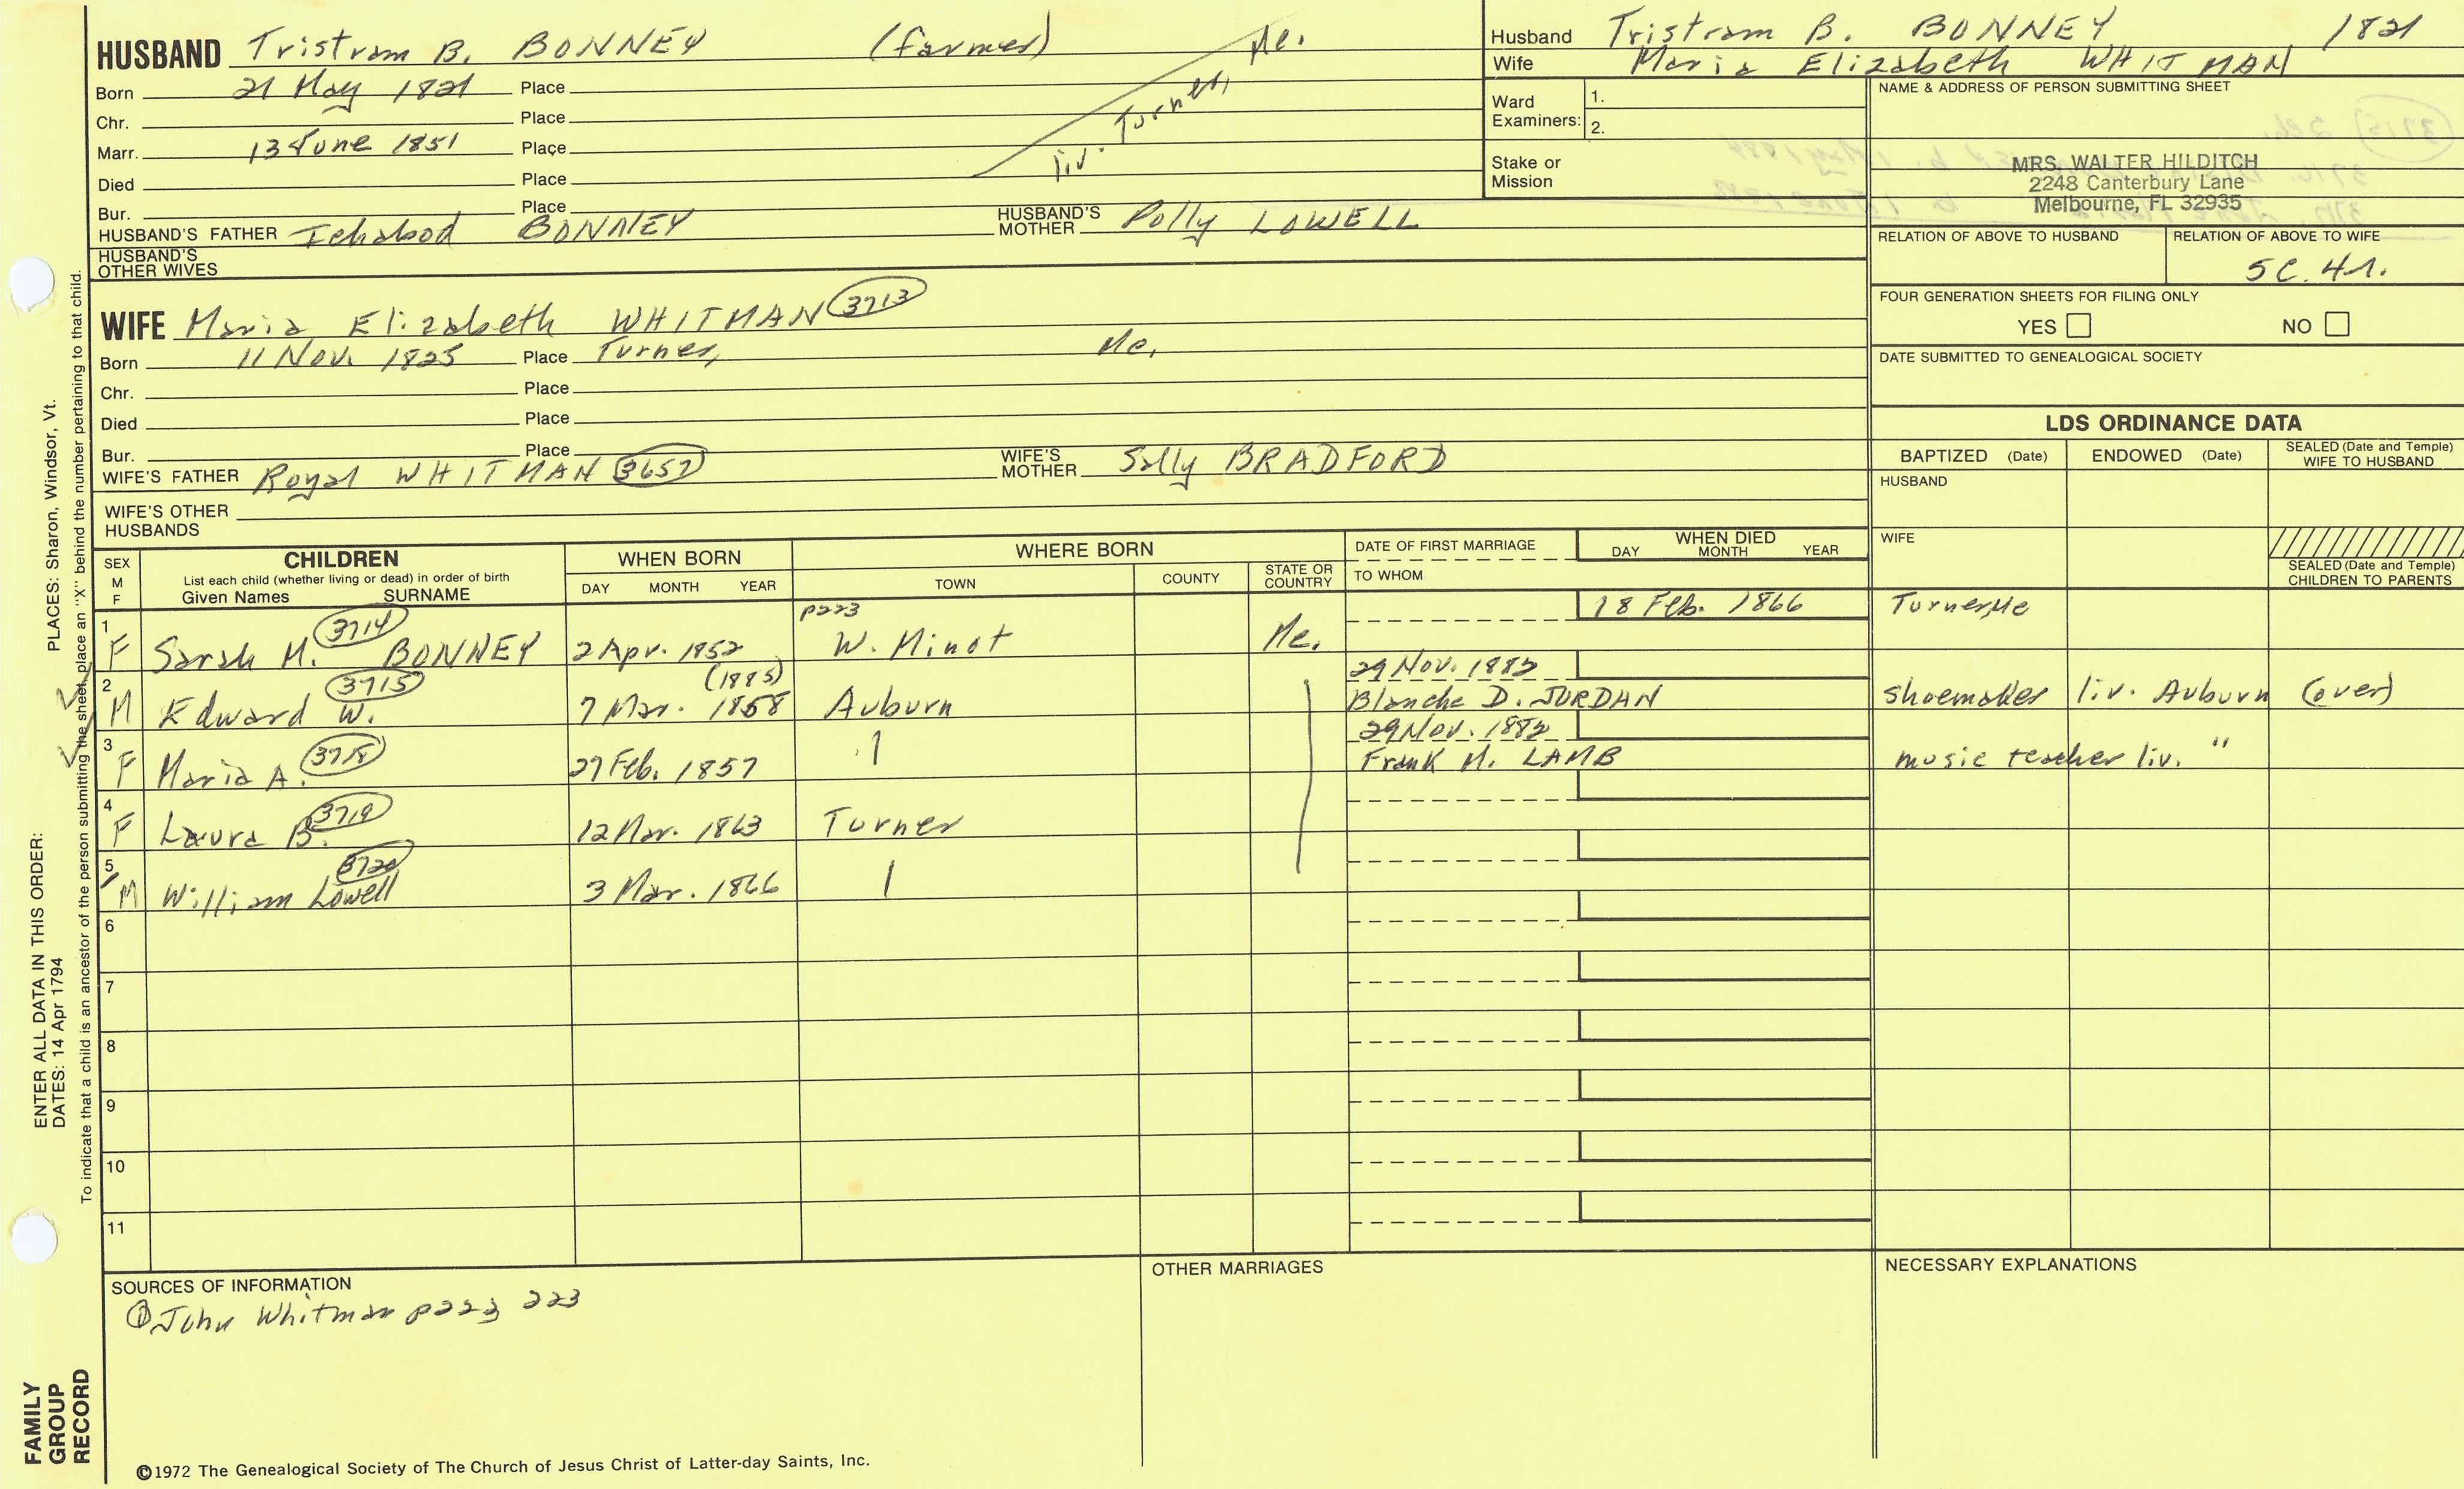 HUSBAND Tristram B. BONNEY (farmer) Me.
Born 21 May 1821 Place
Chr. Place
Marr. 13 June 1851 Place
liv. Turner,
Died Place
Bur. Place
HUSBAND'S FATHER Ichabod BONNEY HUSBAND'S MOTHER Polly LOWELL
HUSBAND'S OTHER WIVES
WIFE Maria Elizabeth WHITMAN 3713
Born 11 Nov. 1825 Place Turner, Me.
Chr. Place
Died Place
Bur. Place
WIFE'S FATHER Royal WHITMAN 3657 WIFE'S MOTHER Sally BRADFORD
WIFE'S OTHER HUSBANDS
Husband Tristram B. BONNEY 1821
Wife Maria Elizabeth WHITMAN
Ward Examiners: 1.
2.
Stake or Mission
NAME & ADDRESS OF PERSON SUBMITTING SHEET
MRS. WALTER HILDITCH
2248 Canterbury Lane
Melbourne, FL 32935
RELATION OF ABOVE TO HUSBAND RELATION OF ABOVE TO WIFE
5C. 4r.
FOUR GENERATION SHEETS FOR FILING ONLY
YES NO
DATE SUBMITTED TO GENEALOGICAL SOCIETY
LDS ORDINANCE DATA
BAPTIZED (Date) ENDOWED (Date) SEALED (Date and Temple) WIFE TO HUSBAND
HUSBAND
WIFE
SEALED (Date and Temple) CHILDREN TO PARENTS
SEX M F CHILDREN WHEN BORN WHERE BORN DATE OF FIRST MARRIAGE WHEN DIED
List each child (whether living or dead) in order of birth
Given Names SURNAME DAY MONTH YEAR TOWN COUNTY STATE OR COUNTRY TO WHOM DAY MONTH YEAR
p223 18 Feb. 1866 Turner, Me
1 F Sarah M. 3714 BONNEY 2 Apr. 1852 W. Minot Me.
(1885) 29 Nov. 1882
2 M Edward W. 3715 7 Mar. 1858 Auburn Blanche D. JORDAN shoemaker liv. Auburn (over)
29 Nov. 1882
3 F Maria A. 3718 27 Feb. 1857 Frank M. LAMB music teacher liv. "
4 F Laura B. 3719 12 Mar. 1863 Turner
5 M William Lowell 3720 3 Mar. 1866
6
7
8
9
10
11
SOURCES OF INFORMATION
① John Whitman p223 223
OTHER MARRIAGES
NECESSARY EXPLANATIONS
©1972 The Genealogical Society of The Church of Jesus Christ of Latter-day Saints, Inc.
FAMILY GROUP RECORD
ENTER ALL DATA IN THIS ORDER:
DATES: 14 Apr 1794
PLACES: Sharon, Windsor, Vt.
To indicate that a child is an ancestor of the person submitting the sheet, place an "X" behind the number pertaining to that child.